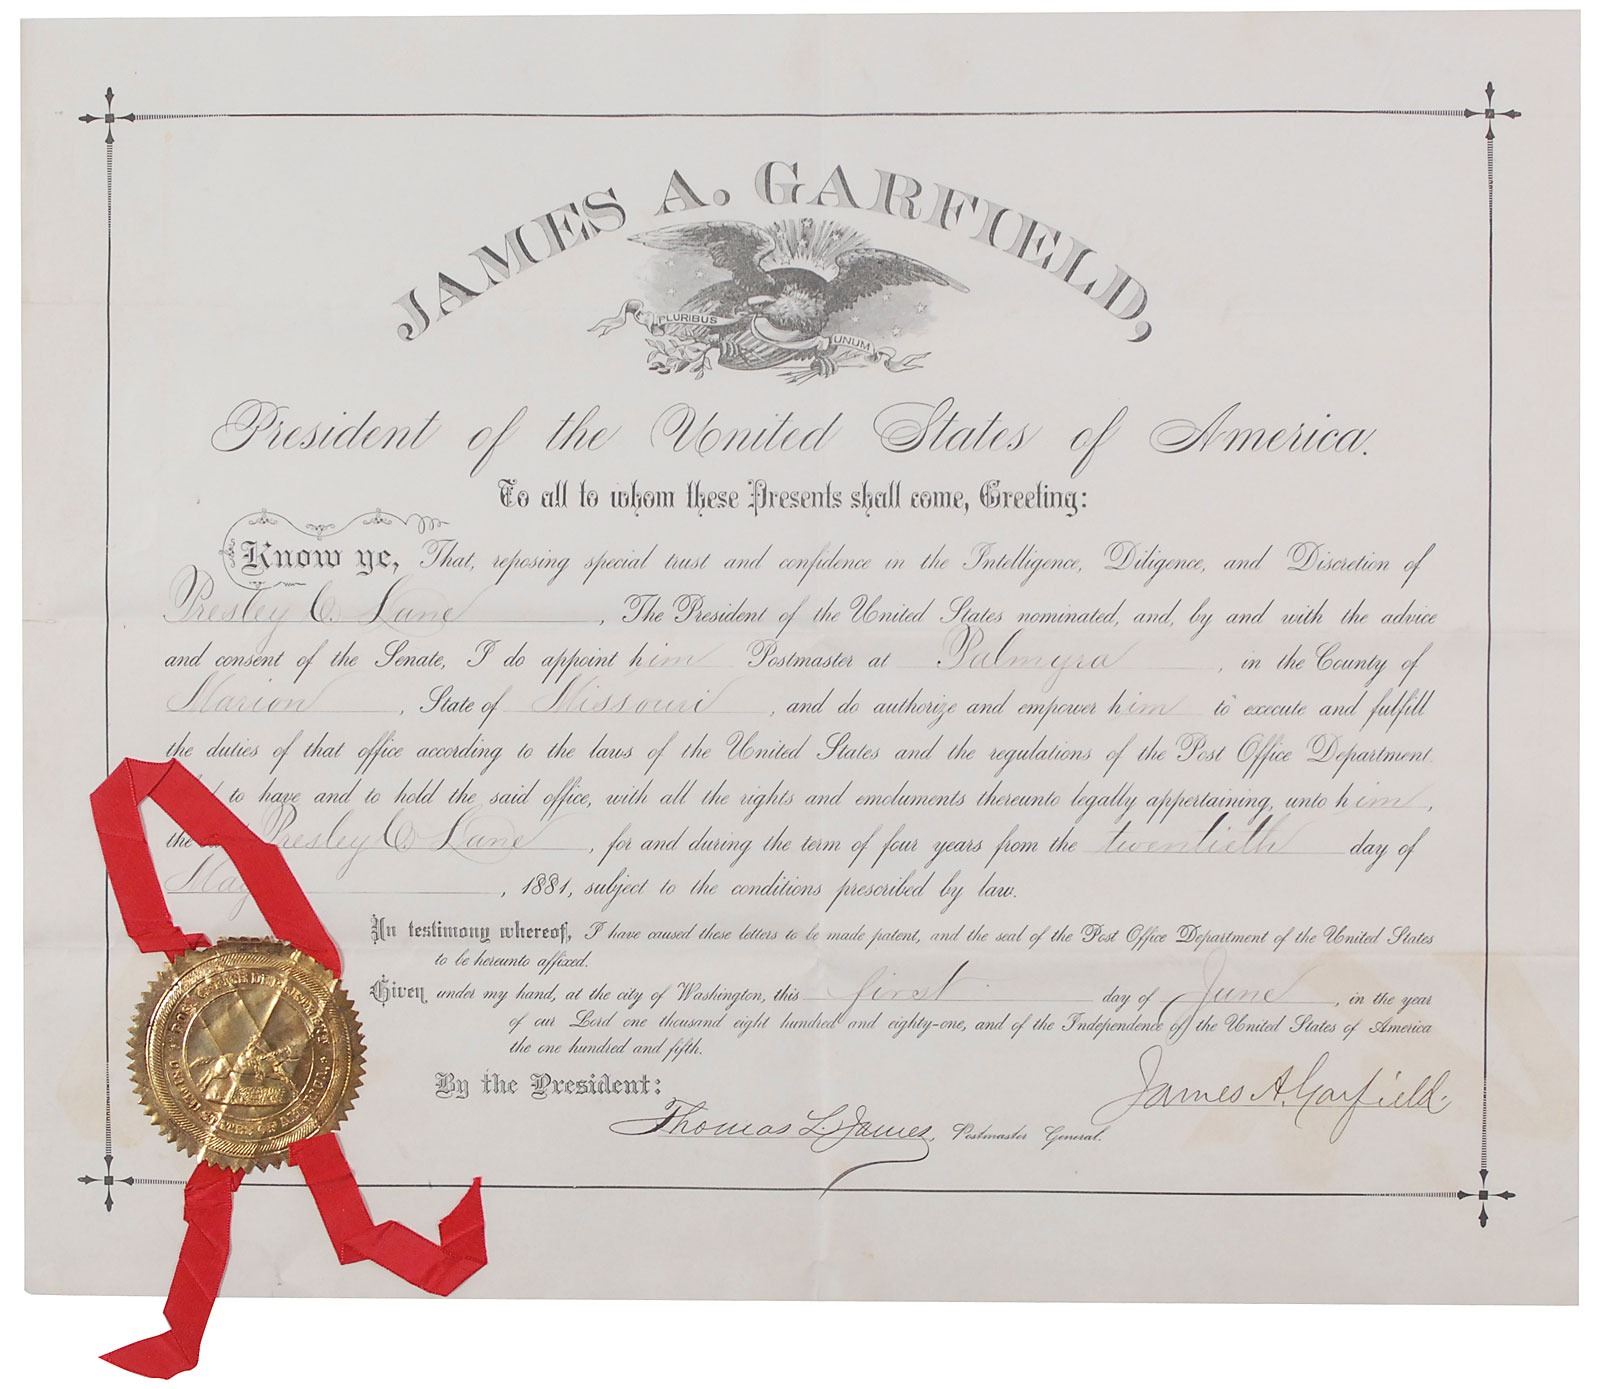 JAMES A. GARFIELD,
PLURIBUS UNUM
President of the United States of America.
To all to whom these Presents shall come, Greeting:
Know ye, That, reposing special trust and confidence in the Intelligence, Diligence, and Discretion of
Presley C. Lane, The President of the United States nominated, and, by and with the advice
and consent of the Senate, I do appoint him Postmaster at Palmyra, in the County of
Marion, State of Missouri, and do authorize and empower him to execute and fulfill
the duties of that office according to the laws of the United States and the regulations of the Post Office Department.
to have and to hold the said office, with all the rights and emoluments thereunto legally appertaining, unto him,
the Presley C. Lane, for and during the term of four years from the twentieth day of
May, 1881, subject to the conditions prescribed by law.
In testimony whereof, I have caused these letters to be made patent, and the seal of the Post Office Department of the United States
to be hereunto affixed.
Given under my hand, at the city of Washington, this first day of June, in the year
of our Lord one thousand eight hundred and eighty-one, and of the Independence of the United States of America
the one hundred and fifth.
By the President:
James A. Garfield
Thomas L. James, Postmaster General.
POST OFFICE DEPARTMENT
UNITED STATES OF AMERICA